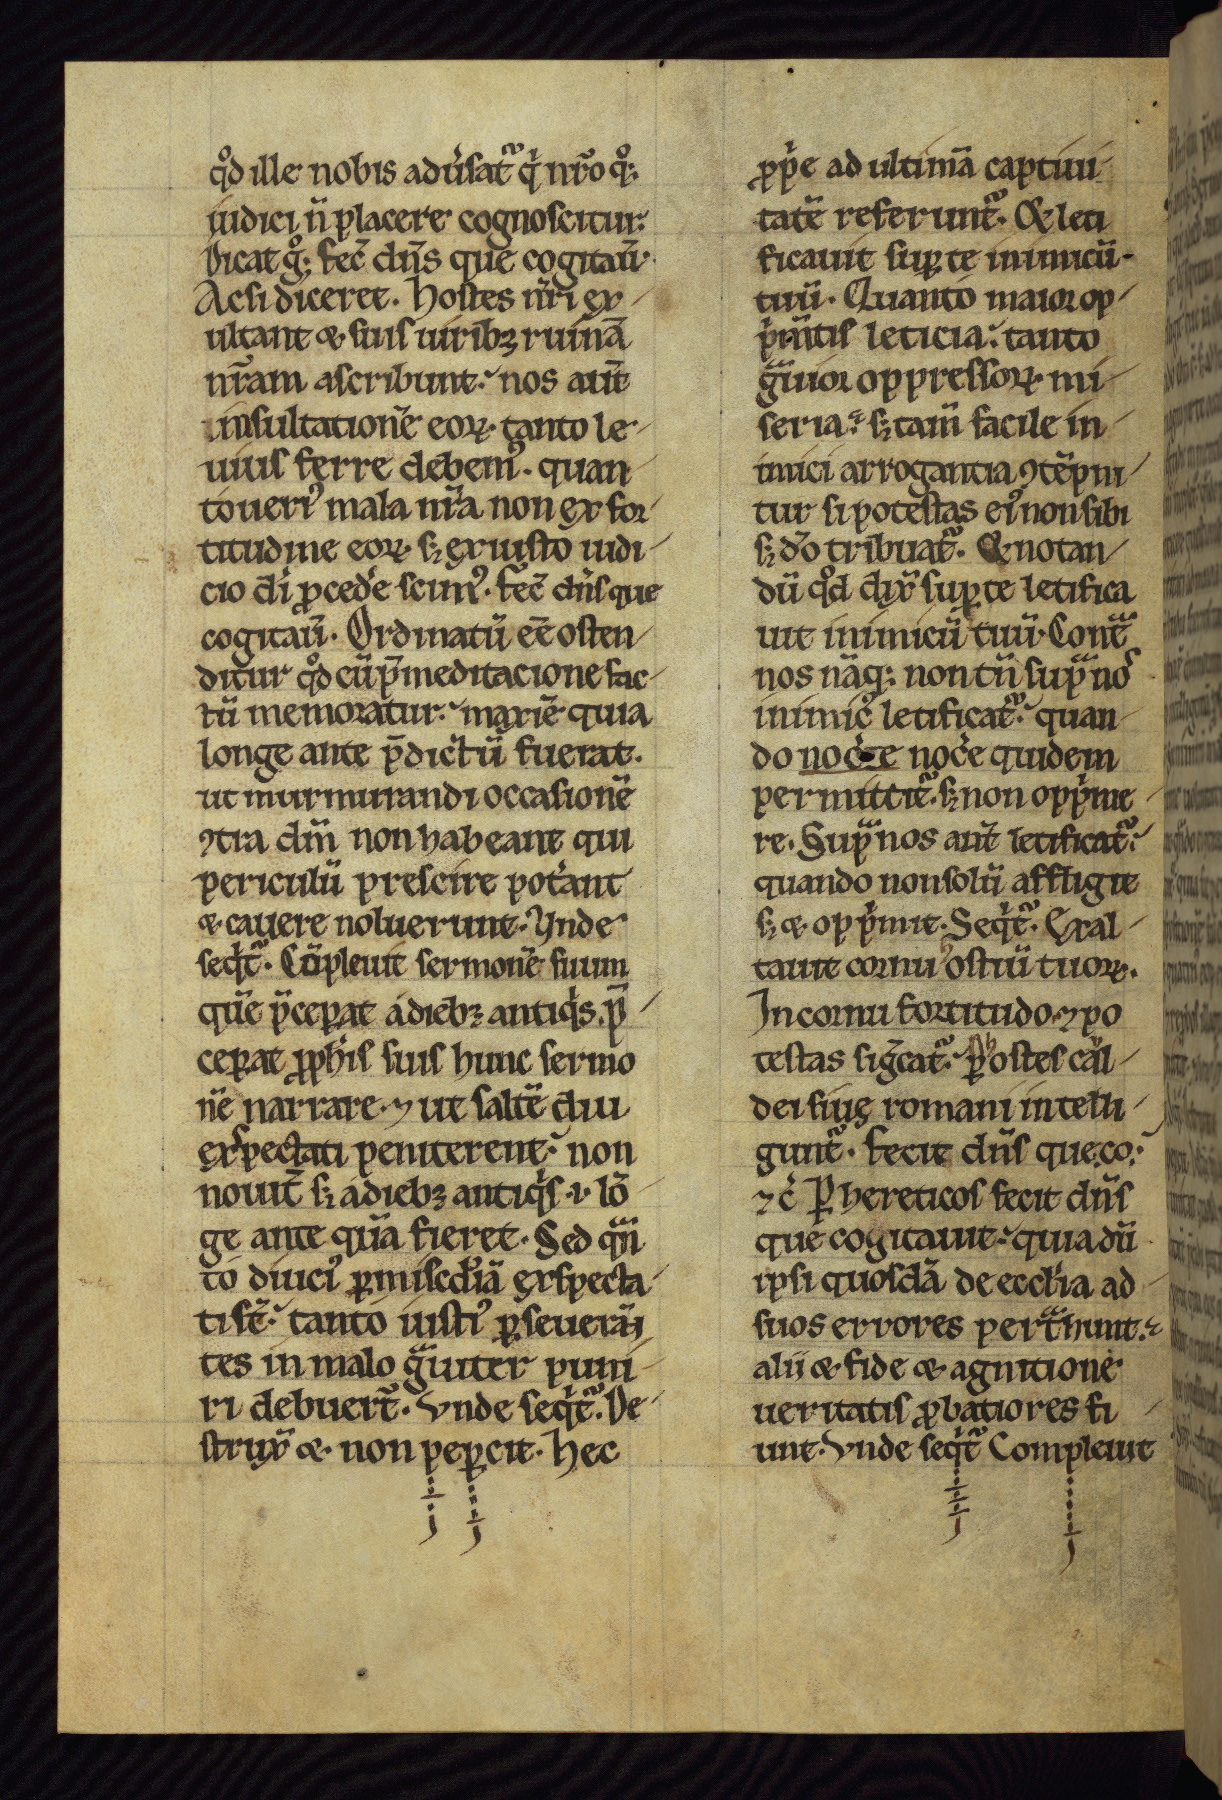 qͦd ille nobis adu̾satᷣ qͥ nr̄o qͦꝫ
iudici n̄ placere cognoscitur.
Dicat gͦ. fec̄ dn̄s que cogitau̾.
Ac si diceret. Hostes nr̄i ex
ultant ⁊ suis uiribꝫ ruinā
nr̄am ascribunt. nos aut̄
insultationē eoꝝ tanto le
uius ferre debemꝰ. quan
to uerꝰ mala nr̄a non ex for
titudine eoꝝ sꝫ ex iusto iudi
cio di̾ ꝓcede̾ scimꝰ. fec̄ dn̄s que
cogitau̾. Ordinatū eē osten
ditur qͦd cū p̄meditacione fac
tū memoratur. maxīe quia
longe ante p̄dictū fuerat.
ut murmurandi occasionē
ꝯtra dn̄m non habeant qui
periculū prescire pot̾ant
⁊ cauere noluerunt. Vnde
seqͥtᷣ. Cōpleuit sermonē suum
quē p̄ceꝑat a diebꝫ antiqͥs. p̄
ceꝑat ꝓph̾is suis hunc sermo
nē narrare. ⁊ ut saltē diu
expectati peniterent. non
nouit̾ sꝫ a diebꝫ antiqͥs .i. lō
ge ante qͣm fieret. Sed qͣn
to diuciꝰ ꝑ mīscd̾iā exspecta
ti st̄. tanto iustiꝰ ꝑseuerā
tes in malo gͣuiter puni
ri debuer̄t. Vnde seqͥtᷣ. De
strux̾ ⁊ non peꝑcit. Hec
ꝓpͥe ad ultimā captiui
tatē referuntᷣ. Et leti
ficauit suꝑ te inimicū
tuū. Quanto maior op
pͥmentis leticia. tanto
gͣuior oppressoꝝ mi
seria. sꝫ tam̄ facile in
imici arrogancia ꝯtēpni
tur si potestas eiꝰ non sibi
sꝫ do̾ tribuatᷣ. Et notan
dū qͦd dix̾ suꝑ te letifica
uit inimicū tuū. Contͣ
nos nāqꝫ non tn̄ supͣ nos
inimicꝰ letificatᷣ. quan
do noc̾e noc̾e quidem
permittitᷣ. sꝫ non oppͥme
re. Supͣ nos aut̄ letificatᷣ.
quando non solū affligit
sꝫ ⁊ oppͥmit. Seqͥtᷣ. Exal
tauit cornu hostiū tuoꝝ.
In cornu fortitudo ⁊ po
testas sig̾catᷣ. ꝑ hostes cal
dei siue romani intelli
guntᷣ. Fecit dn̄s que co.
⁊c̾ Ꝑ hereticos fecit dn̄s
que cogitauit. quia dū
ipsi quosdā de eccl̾ia ad
suos errores pertͣhunt.
alii ⁊ fide ⁊ agnitione
ueritatis ꝓbatiores fi
unt. Vnde seqͥtᷣ Compleuit